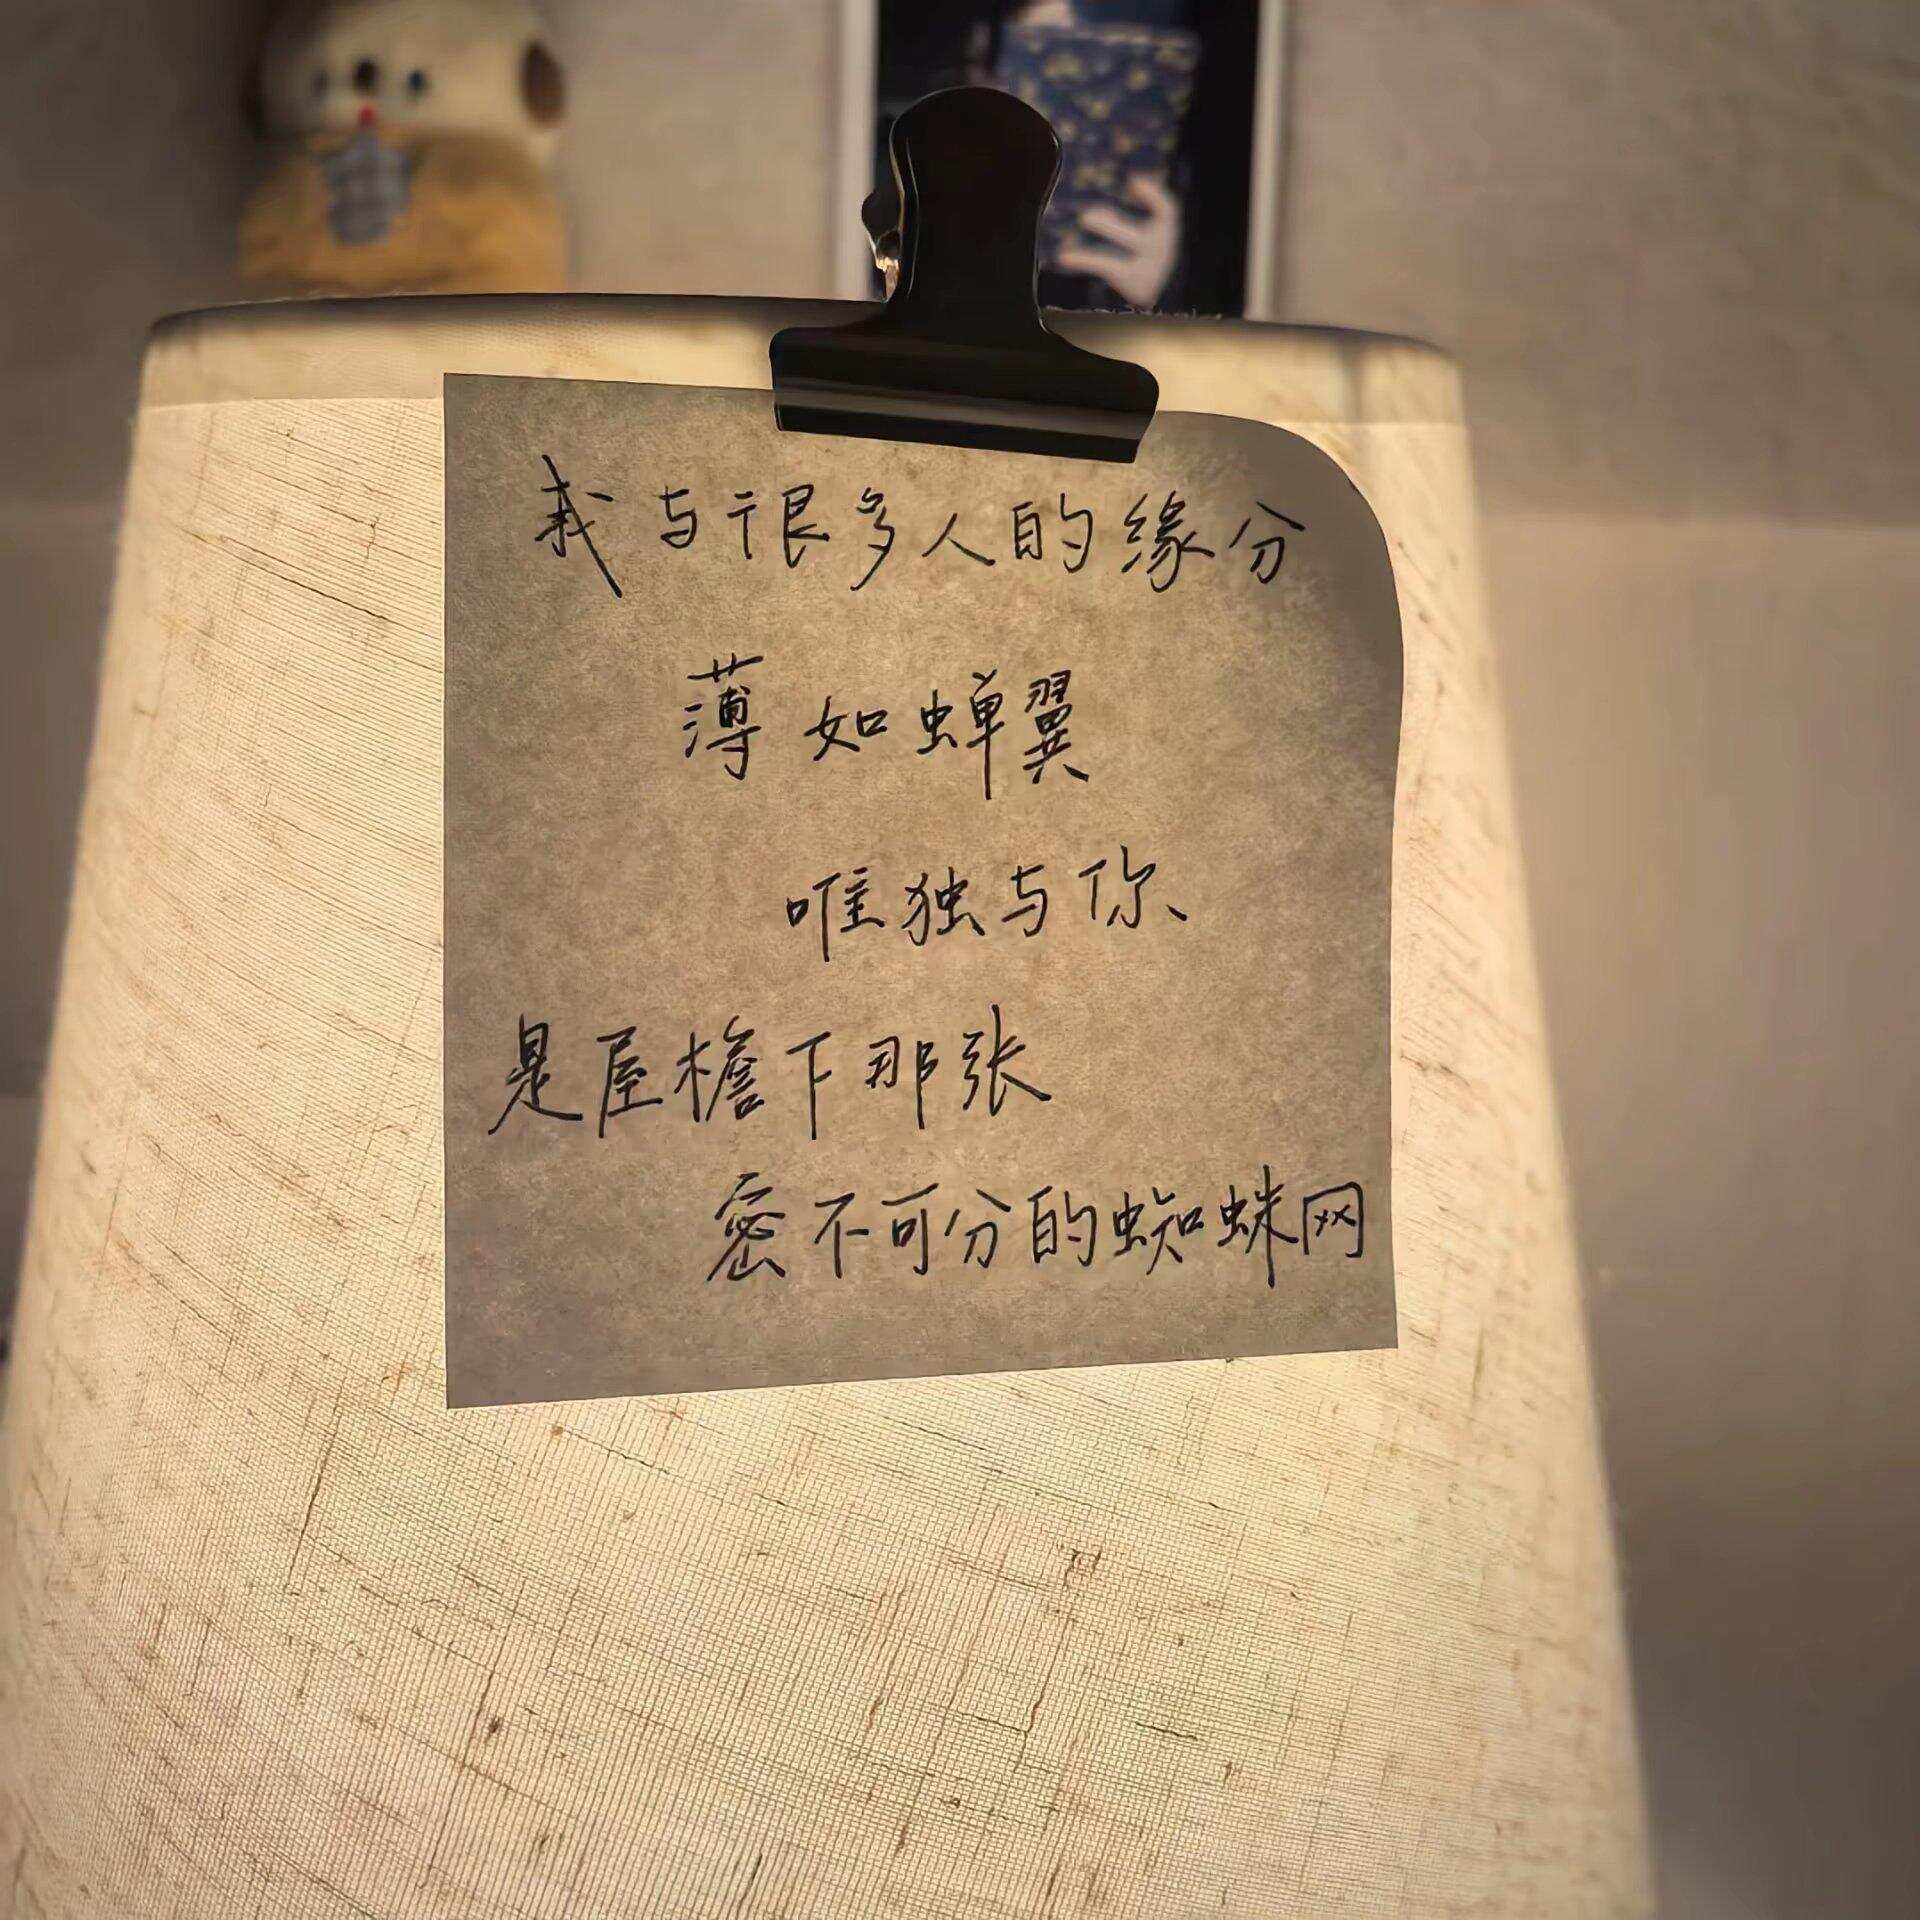 我与很多人的缘分
薄如蝉翼
唯独与你
是屋檐下那张
密不可分的蜘蛛网